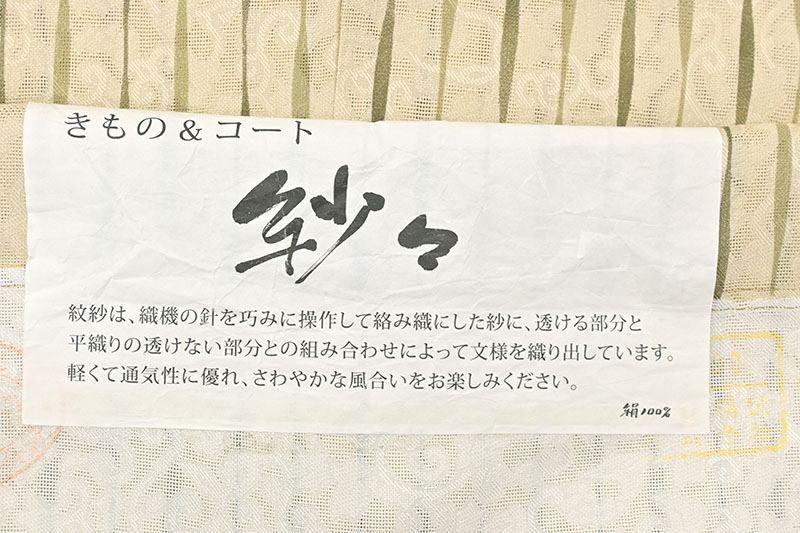 きもの＆コート
紗々
紋紗は、織機の針を巧みに操作して絡み織にした紗に、透ける部分と
平織りの透けない部分との組み合わせによって文様を織り出しています。
軽くて通気性に優れ、さわやかな風合いをお楽しみください。
絹100%